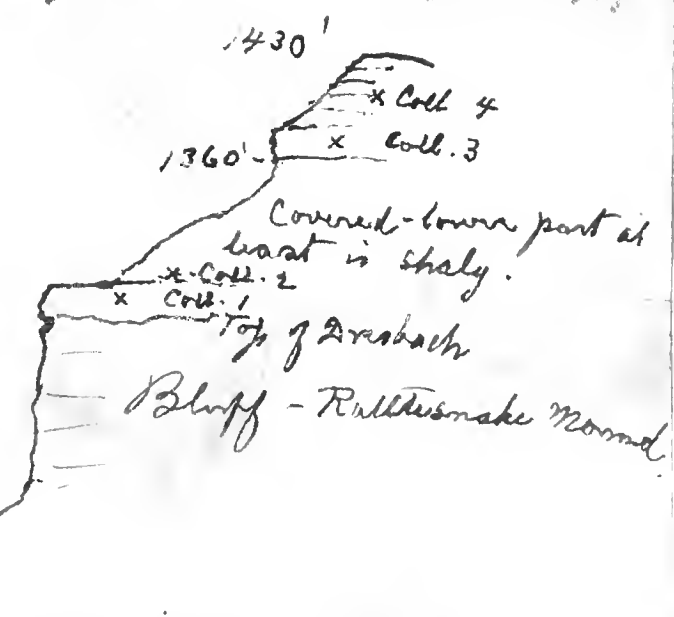 1430'
x Coll 4
1360'- x Coll. 3
Covered - lower part at
least is shaly.
x - Coll. 2
x Coll. 1
Top of Dresbach
Bluff - Rattlesnake Mound